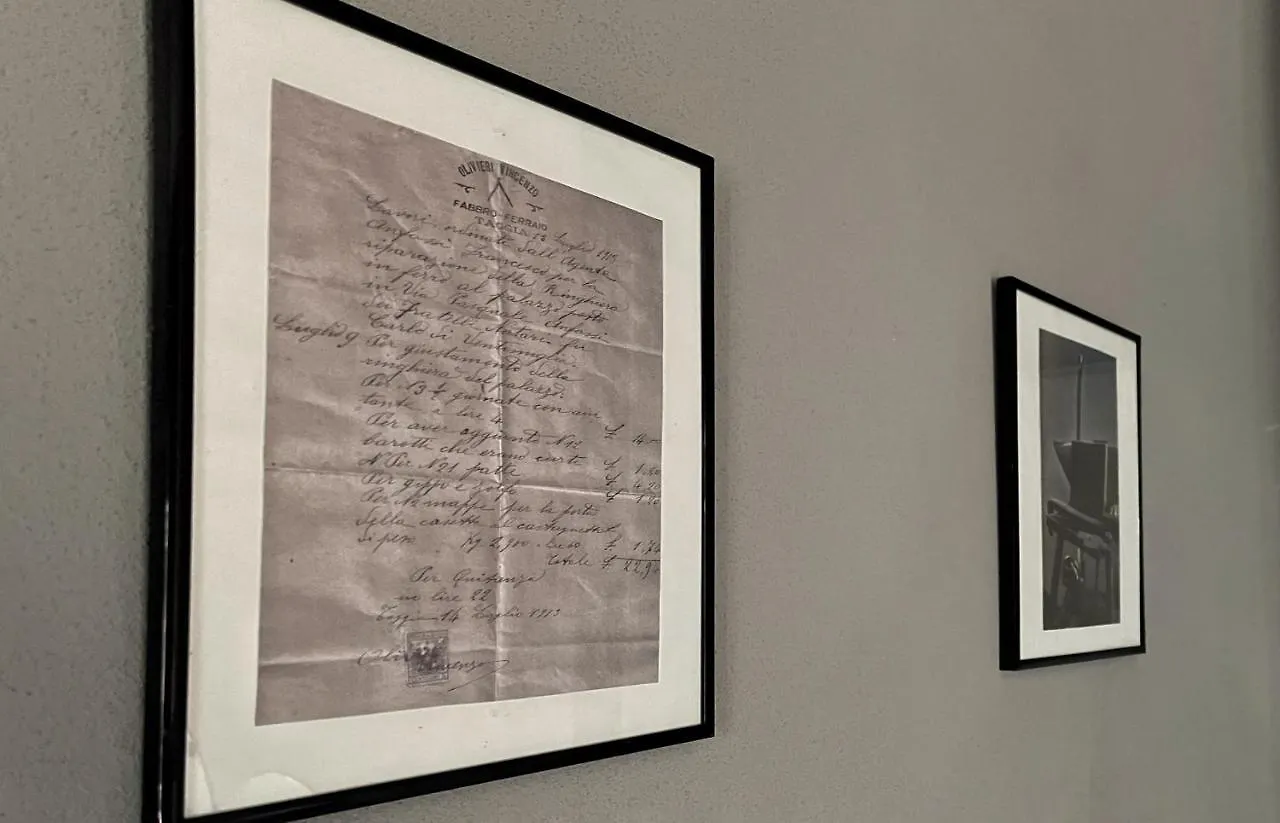 OLIVIERI VINCENZO
FABBRO-FERRAIO
TAGGIA 14 Luglio 1913
Lavori ordinati dall'Agente
Anfossi Francesco per la
riparazione della Ringhiera
in ferro al palazzo posto
in Via Pasquale Anfossi
dei Fratelli Notari fu
Carlo di Ventimiglia.
Luglio 9 Per giustamento della
ringhiera del palazzo.
Per N 3 ½ giornate con aiu
tante a lire 4 £ 14
Per aver aggiunto N 12
barotti che erano curti £
N Per N 21 patte £ 4 20
Per gippo e zolfo £
Per N 2 mappe per la porta
della casetta al
di peso Kg 2,900 £ 1,74
Totale £ 22,9
Per Quitanza
in lire 22
14 Luglio 1913
Vincenzo